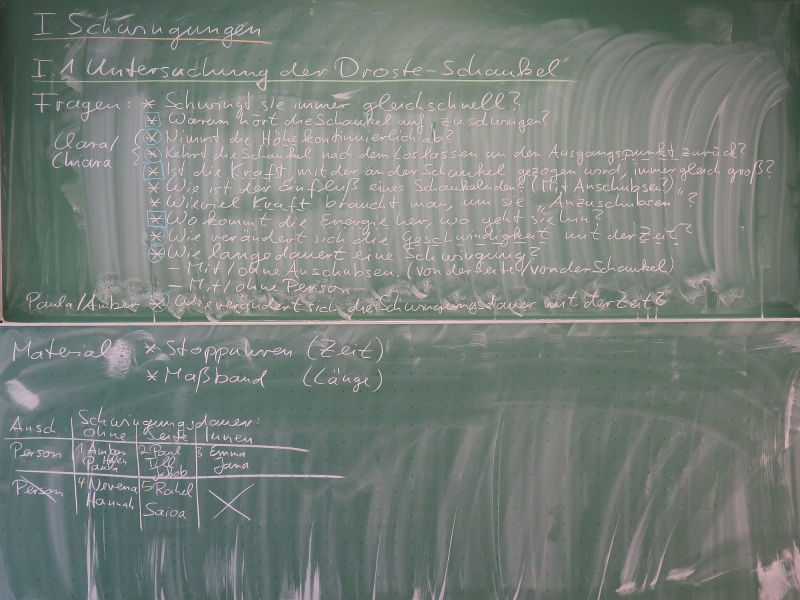 I Schwingungen
I.1 Untersuchung der Droste-Schaukel
Fragen: * Schwingt sie immer gleichschnell?
* Warum hört die Schaukel auf, zu schwingen?
Clara/ * Nimmt die Höhe kontinuierlich ab?
Chiara * Kehrt die Schaukel nach dem Loslassen an den Ausgangspunkt zurück?
* Ist die Kraft, mit der an der Schaukel gezogen wird, immer gleich groß?
* Wie ist der Einfluß eines Schaukelnden? (Mit Anschubsen?)
* Wieviel Kraft braucht man, um sie "Anzuschubsen"?
* Wo kommt die Energie her, wo geht sie hin?
* Wie verändert sich die Geschwindigkeit mit der Zeit?
* Wie lange dauert eine Schwingung?
- Mit/ohne Anschubsen. (von der Seite/von der Schaukel)
- Mit/ohne Person
Paula/Amber * Wie verändert sich die Schwingungsdauer mit der Zeit?
Material * Stoppuhren (Zeit)
* Maßband (Länge)
Schwingungsdauer:
Ansch. ohne Seite Innen
Person 1 Amber 2 Paul 3 Emma
Paula Till Jana
Jakob
Person 4 Nevena 5 Rahel
Hannah Saioa